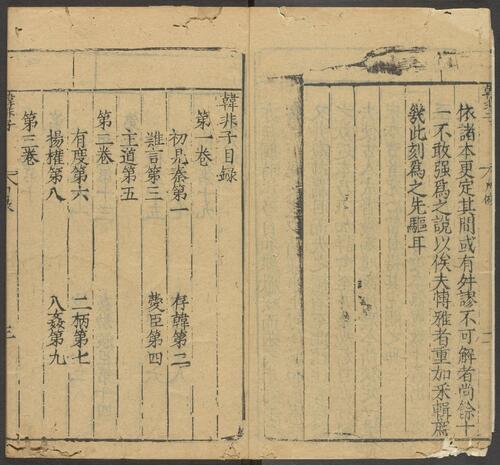 依諸本更定其間或有舛謬不可解者尚餘十
一不敢强爲之說以俟夫慱雅者重加采輯庶
幾此刻爲之先驅耳
韓非子目録
第一卷
初見秦第一
存韓第二
難言第三
愛臣第四
主道第五
第二卷
有度第六
二柄第七
揚權第八
八姦第九
第三卷
韓非子
目録
三